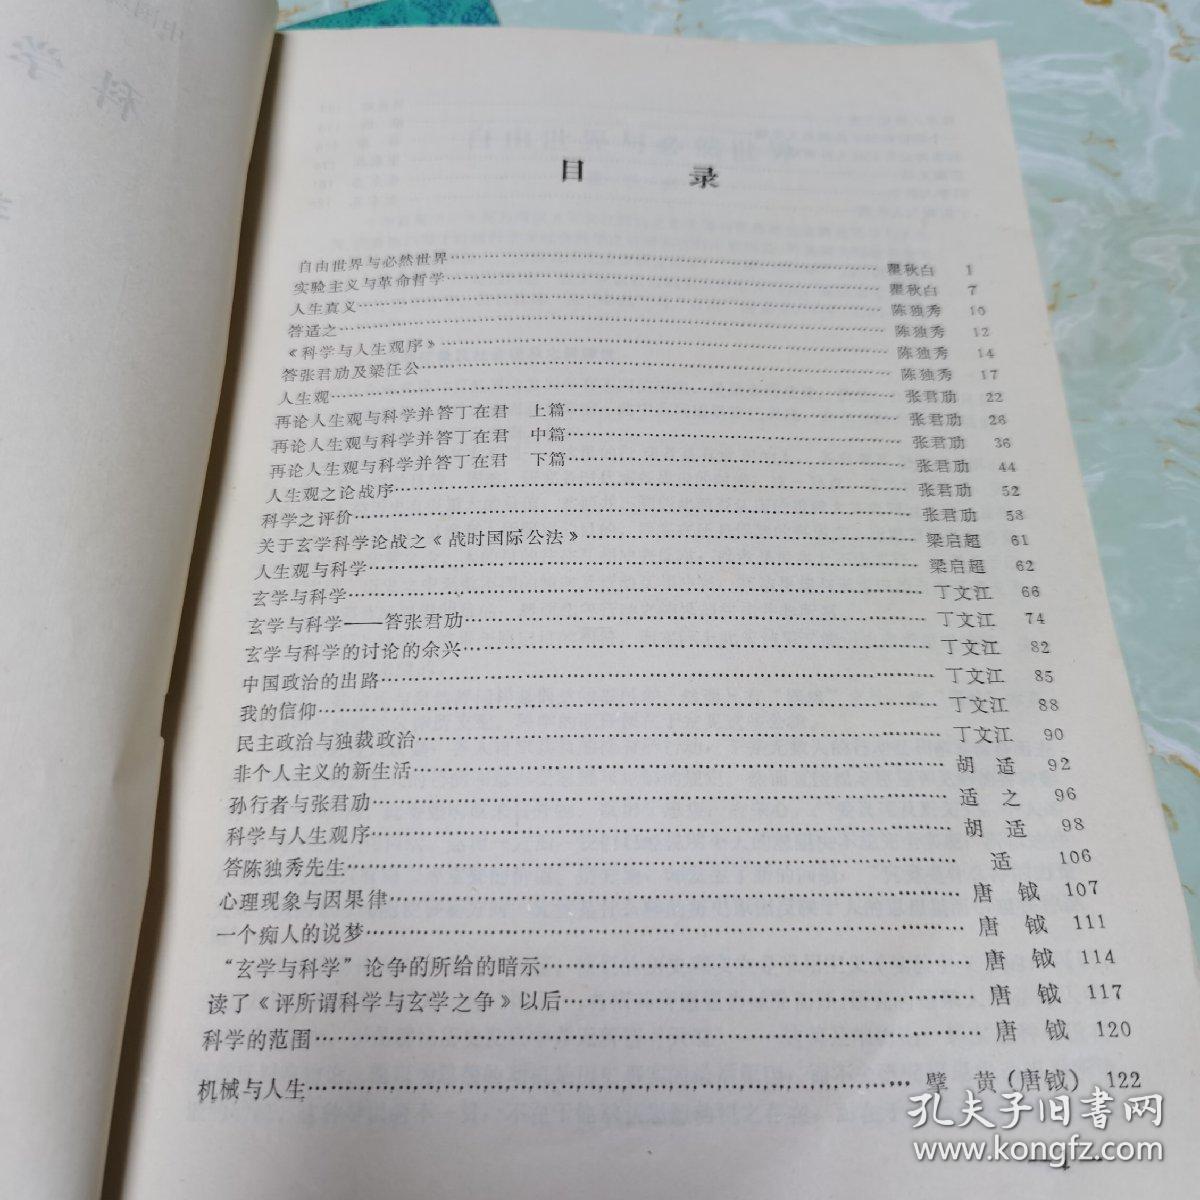 科学
目 录
自由世界与必然世界……瞿秋白 1
实验主义与革命哲学……瞿秋白 7
人生真义……陈独秀 10
答适之……陈独秀 12
《科学与人生观序》……陈独秀 14
答张君劢及梁任公……陈独秀 17
人生观……张君劢 22
再论人生观与科学并答丁在君 上篇……张君劢 26
再论人生观与科学并答丁在君 中篇……张君劢 36
再论人生观与科学并答丁在君 下篇……张君劢 44
人生观之论战序……张君劢 52
科学之评价……张君劢 58
关于玄学科学论战之《战时国际公法》……梁启超 61
人生观与科学……梁启超 62
玄学与科学……丁文江 66
玄学与科学——答张君劢……丁文江 74
玄学与科学的讨论的余兴……丁文江 82
中国政治的出路……丁文江 85
我的信仰……丁文江 88
民主政治与独裁政治……丁文江 90
非个人主义的新生活……胡 适 92
孙行者与张君劢……适 之 96
科学与人生观序……胡 适 98
答陈独秀先生……适 106
心理现象与因果律……唐 钺 107
一个痴人的说梦……唐 钺 111
“玄学与科学”论争的所给的暗示……唐 钺 114
读了《评所谓科学与玄学之争》以后……唐 钺 117
科学的范围……唐 钺 120
机械与人生……擘 黄(唐钺) 122
— 1 —
孔夫子旧书网
www.kongfz.com